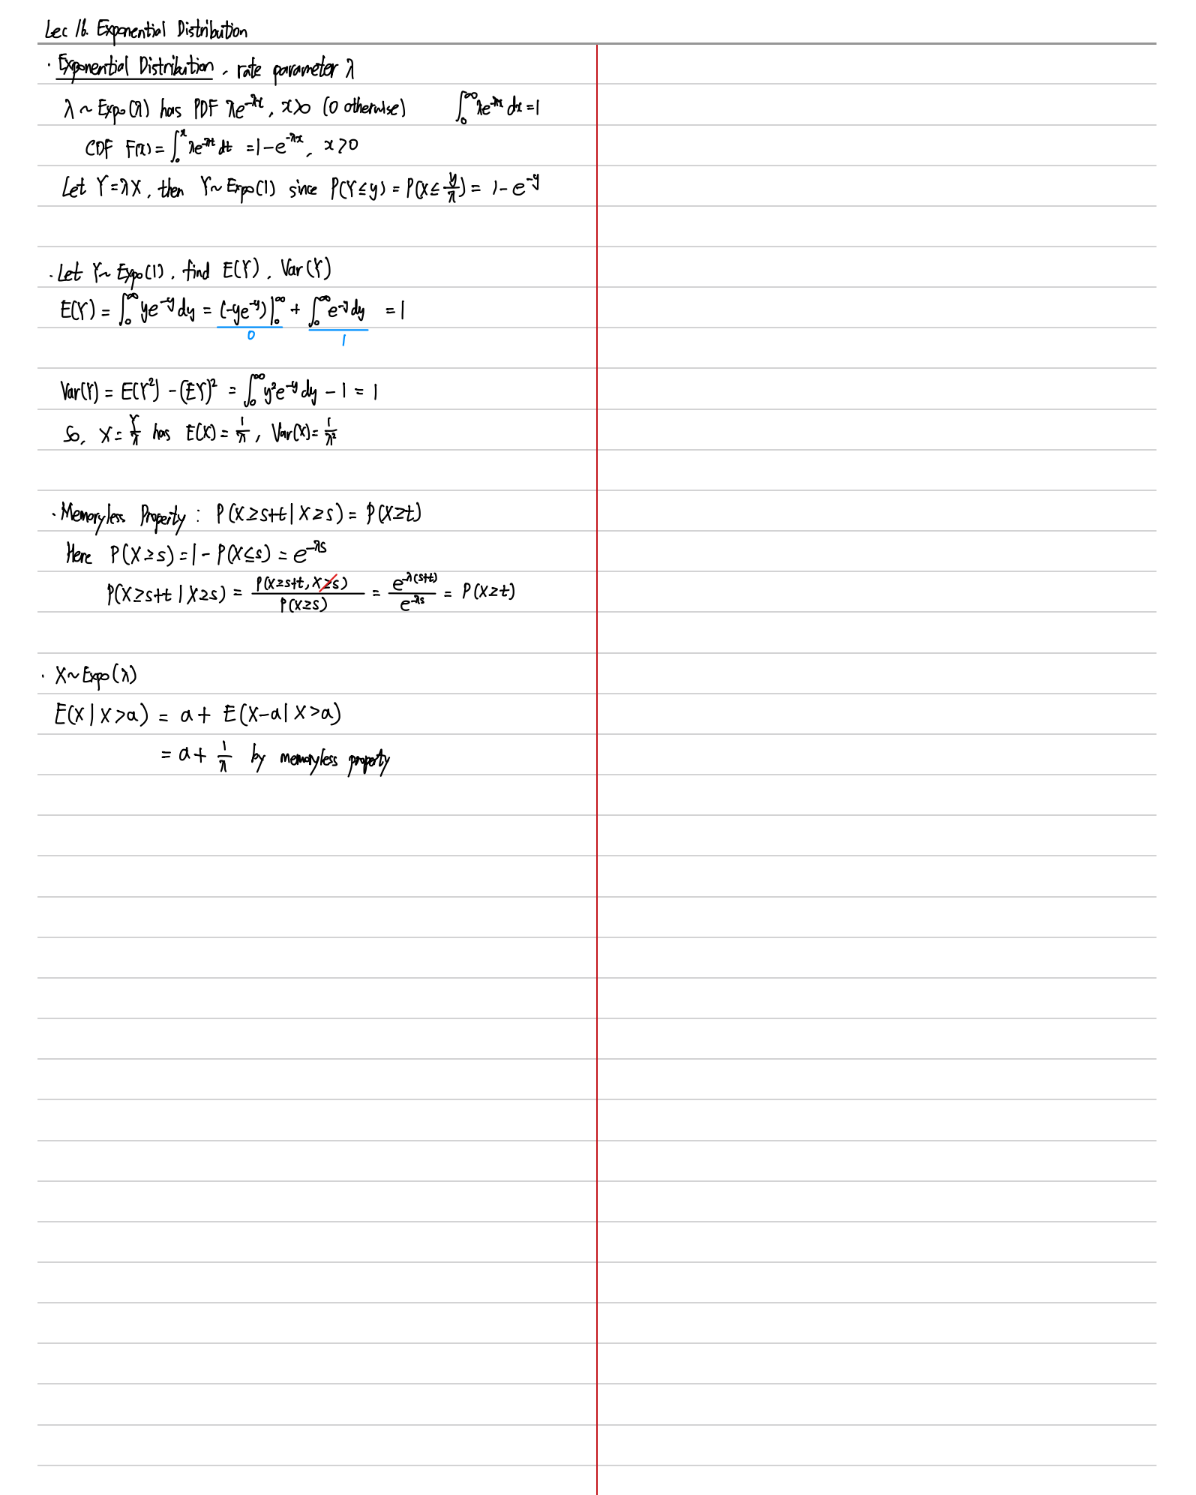 Lec 16. Exponential Distribution
· Exponential Distribution, rate parameter λ
λ ~ Expo(λ) has PDF λe^{-λx}, x>0 (0 otherwise) ∫_0^∞ λe^{-λx} dx = 1
CDF F(x) = ∫_0^x λe^{-λt} dt = 1 - e^{-λx}, x>0
Let Y = λX, then Y ~ Expo(1) since P(Y≤y) = P(X≤y/λ) = 1 - e^{-y}
· Let Y ~ Expo(1), find E(Y), Var(Y)
E(Y) = ∫_0^∞ ye^{-y} dy = (-ye^{-y})|_0^∞ + ∫_0^∞ e^{-y} dy = 1
0 1
Var(Y) = E(Y²) - (EY)² = ∫_0^∞ y²e^{-y} dy - 1 = 1
So, X = Y/λ has E(X) = 1/λ, Var(X) = 1/λ²
· Memoryless Property : P(X≥s+t | X≥s) = P(X≥t)
Here P(X≥s) = 1 - P(X≤s) = e^{-λs}
P(X≥s+t | X≥s) = P(X≥s+t, X≥s)/P(X≥s) = e^{-λ(s+t)}/e^{-λs} = P(X≥t)
· X ~ Expo(λ)
E(X | X>a) = a + E(X-a | X>a)
= a + 1/λ by memoryless property